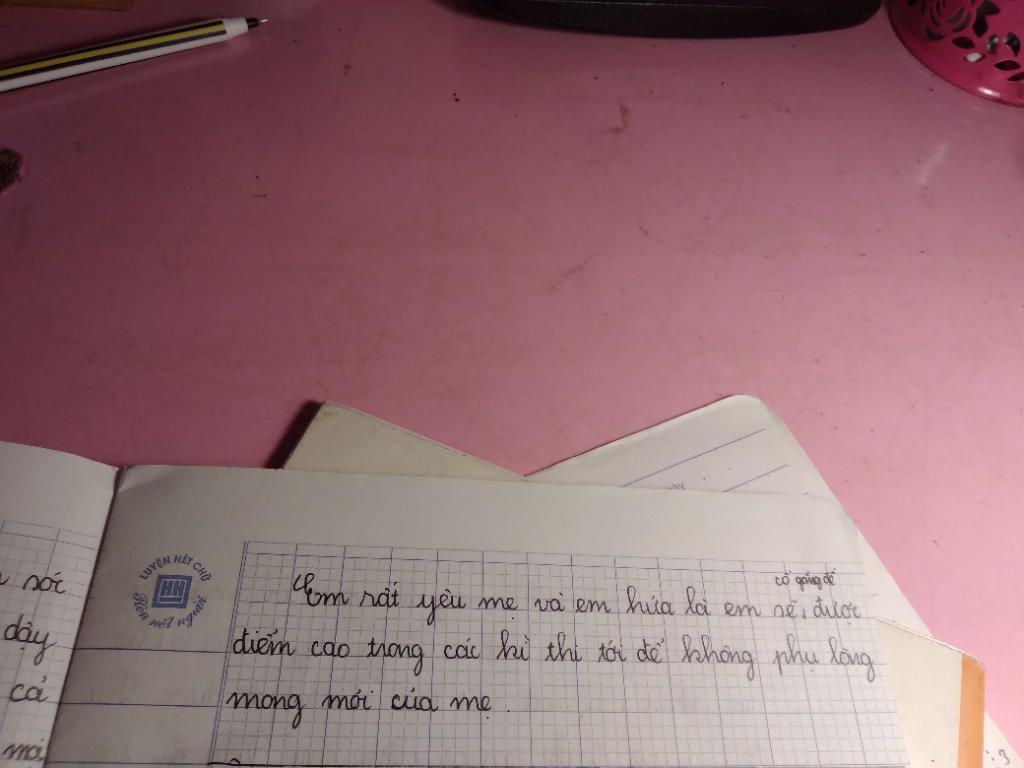 sóc
dậy
cả
LUYỆN NÉT CHỮ
HH
Rèn nết người
cố gắng để
Em rất yêu mẹ và em hứa là em sẽ được
điểm cao trong các kì thi tới để không phụ lòng
mong mới của mẹ.